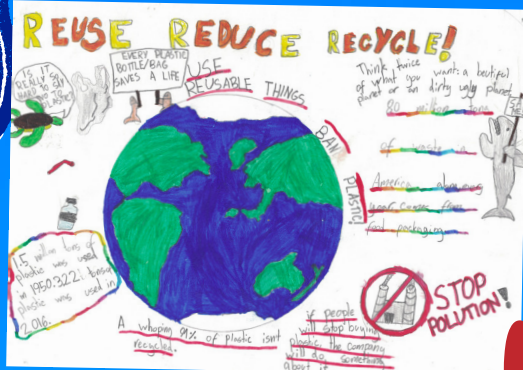 REUSE REDUCE RECYCLE!
IS IT
REALLY SO
HARD TO SAY
NO TO
PLASTIC?
EVERY PLASTIC
BOTTLE/BAG
SAVES A LIFE
USE
REUSABLE THINGS
BAN
PLASTIC!
Think twice
of what you want: a beutiful
planet or an dirty ugly planet
80 million tons
of waste in
America
comes from
food packaging
1.5 million tons of
plastic was used
in 1950.322
plastic was used in
2,016.
A whoping 91% of plastic isnt
recycled.
if people
will stop buying
plastic, the company
will do something
about it
STOP
POLUTION!